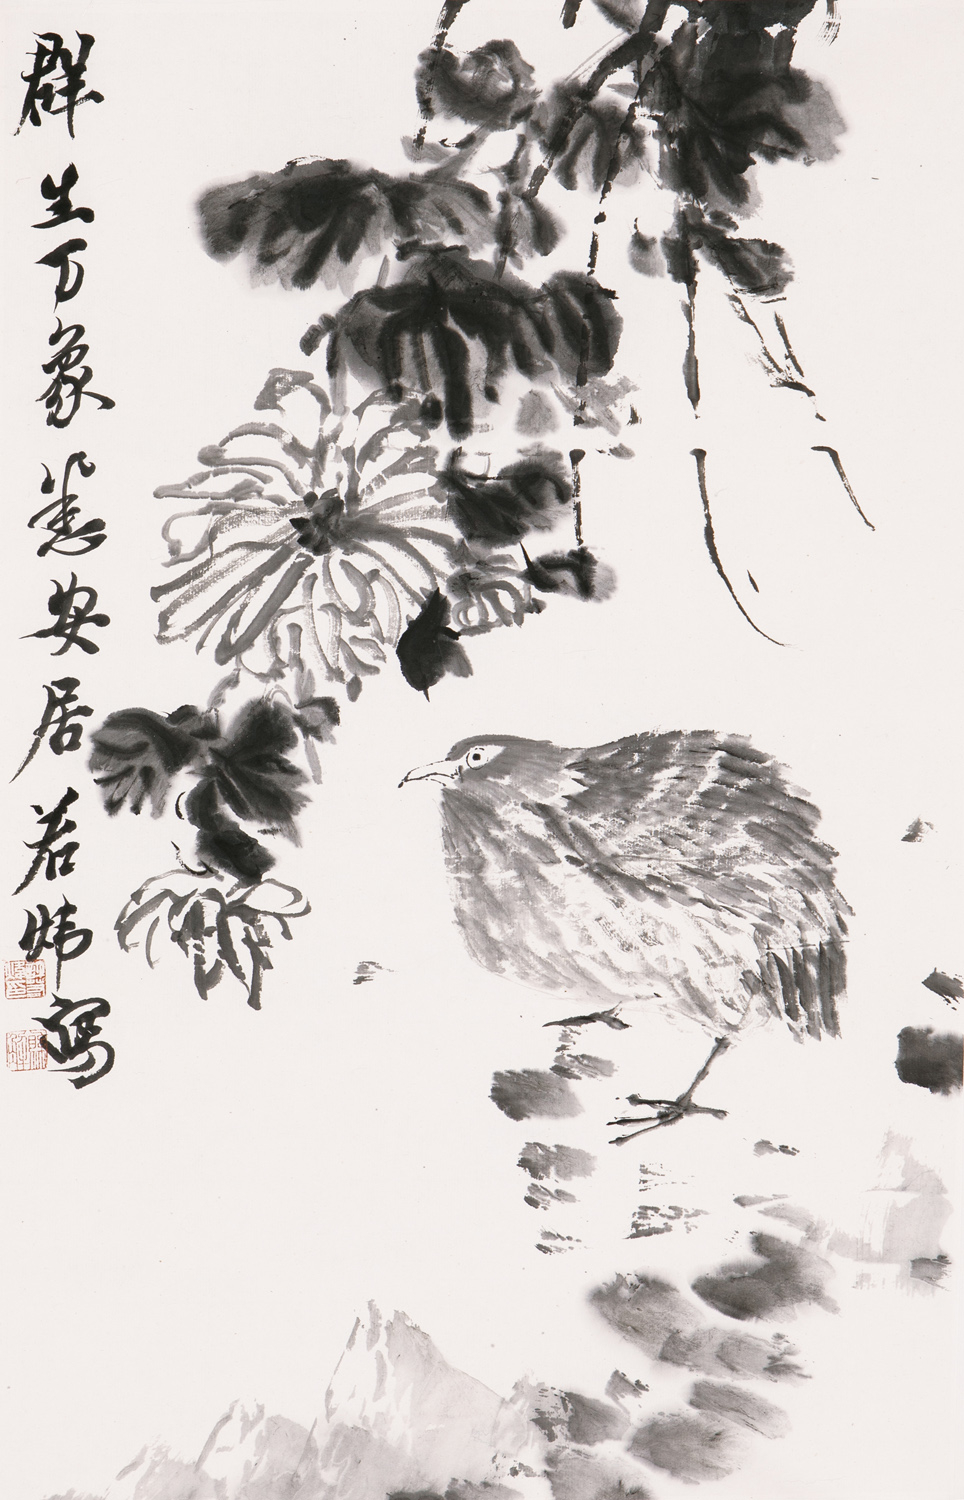 群生万象悉安居若炜写